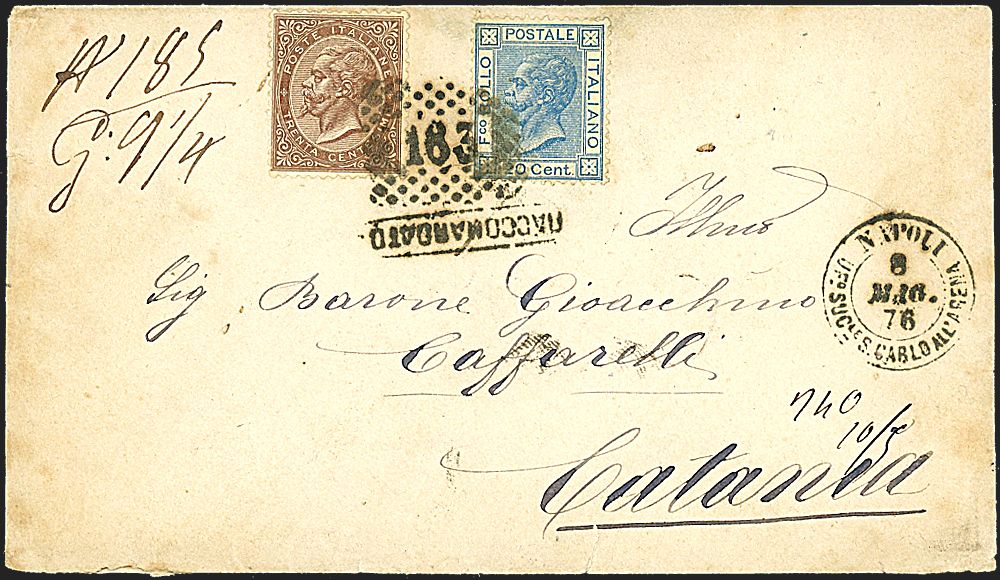 N° 185
g. 9 1/4
POSTE ITALIANE
TRENTA CENTESIMI
POSTALE
F.co BOLLO
ITALIANO
20 Cent.
183
RACCOMANDATO
Illmo
Sig Barone Gioacchino
Caffarelli
Catania
NAPOLI
8
MAG.
76
UFO SUCle S. CARLO ALL'ARENA
740
10/5